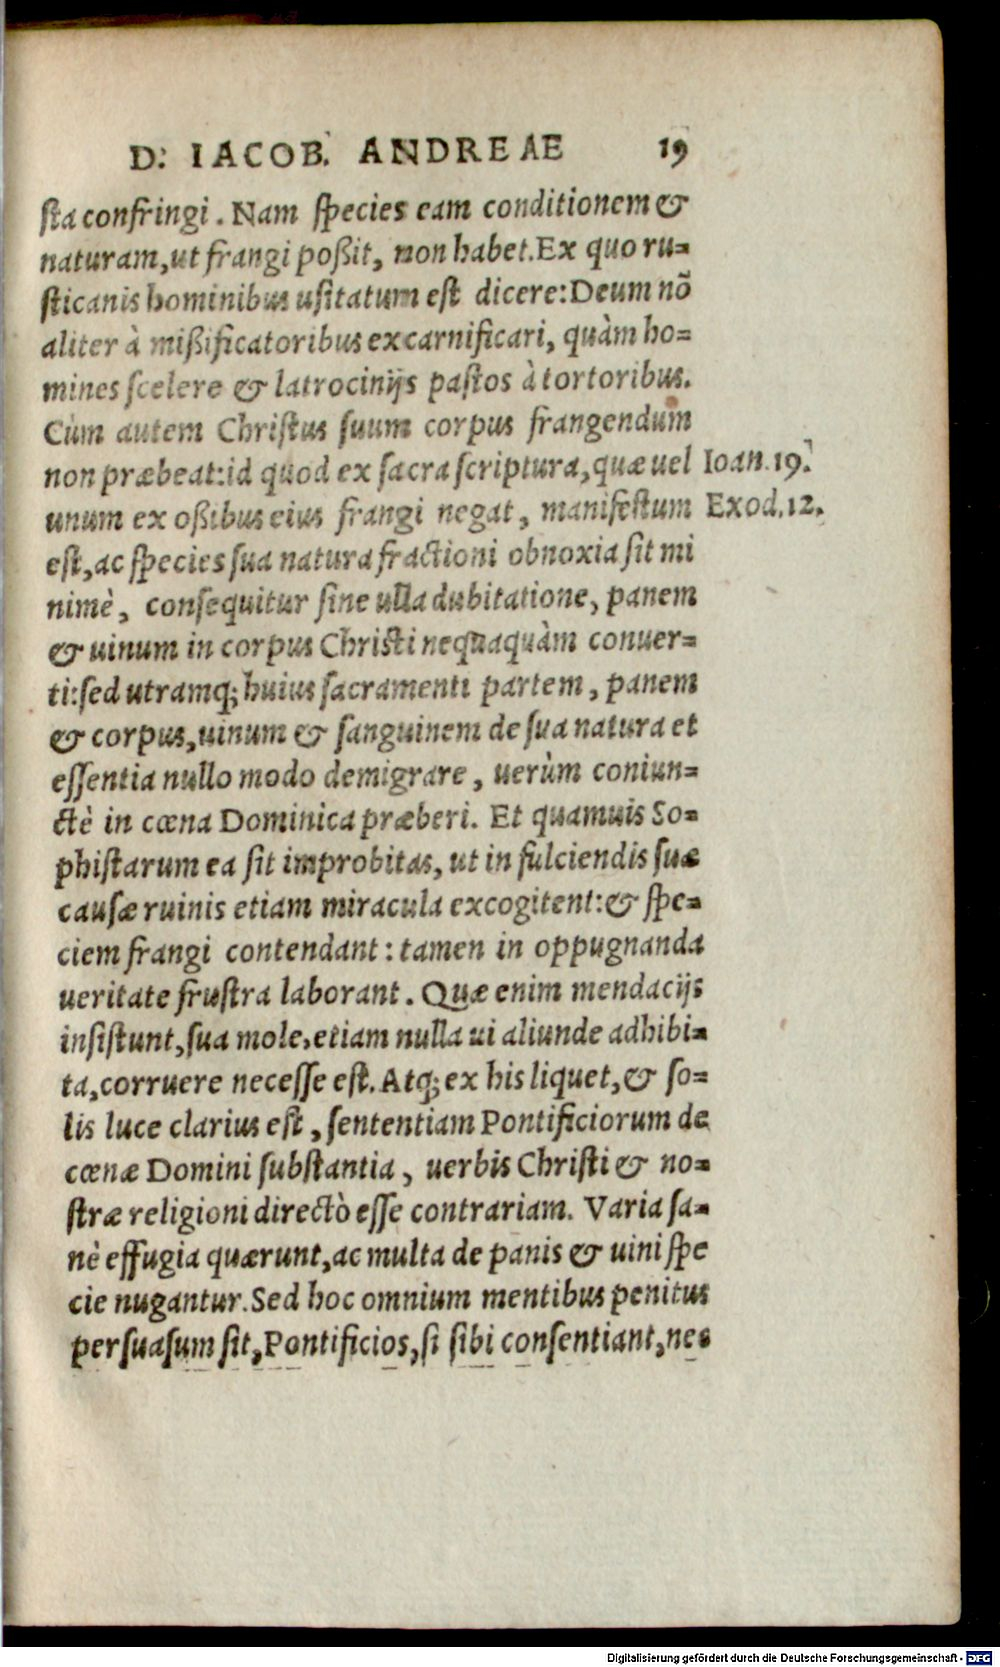 D. IACOB. ANDREAE 19
sta confringi. Nam species eam conditionem &
naturam, ut frangi poßit, non habet. Ex quo ru=
sticanis hominibus usitatum est dicere: Deum nõ
aliter à mißificatoribus excarnificari, quàm ho=
mines scelere & latrocinijs pastos à tortoribus.
Cùm autem Christus suum corpus frangendum
non præbeat: id quod ex sacra scriptura, quæ uel Ioan. 19.
unum ex oßibus eius frangi negat, manifestum Exod. 12.
est, ac species sua natura fractioni obnoxia sit mi
nimè, consequitur sine ulla dubitatione, panem
& uinum in corpus Christi nequaquàm conuer=
ti: sed utramq; huius sacramenti partem, panem
& corpus, uinum & sanguinem de sua natura et
essentia nullo modo demigrare, uerùm coniun=
ctè in cœna Dominica præberi. Et quamuis So=
phistarum ea sit improbitas, ut in fulciendis suæ
causæ ruinis etiam miracula excogitent: & spe=
ciem frangi contendant: tamen in oppugnanda
ueritate frustra laborant. Quæ enim mendacijs
insistunt, sua mole, etiam nulla ui aliunde adhibi=
ta, corruere necesse est. Atq; ex his liquet, & so=
lis luce clarius est, sententiam Pontificiorum de
cœnæ Domini substantia, uerbis Christi & no=
stræ religioni directò esse contrariam. Varia sa=
nè effugia quærunt, ac multa de panis & uini spe
cie nugantur. Sed hoc omnium mentibus penitus
persuasum sit, Pontificios, si sibi consentiant, ne=
Digitalisierung gefördert durch die Deutsche Forschungsgemeinschaft - DFG